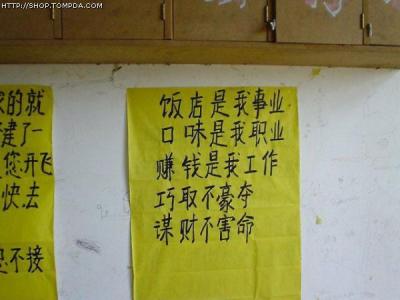 HTTP://SHOP.TOMPDA.COM
饭店是我事业
口味是我职业
赚钱是我工作
巧取不豪夺
谋财不害命
的就
建了一
您开飞
快去
不接